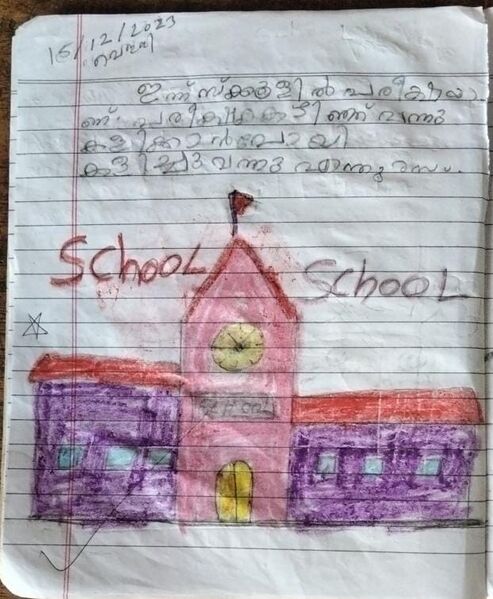 15/12/2023
വെള്ളി
ഇന്ന് സ്ക്കൂളിൽ പരീക്ഷയാ
ണ്. പരീക്ഷകഴിഞ്ഞ് വന്നു
കളിക്കാൻപോയി
കളിച്ചുവന്നു
SCHOOL
SCHOOL
SCHOOL